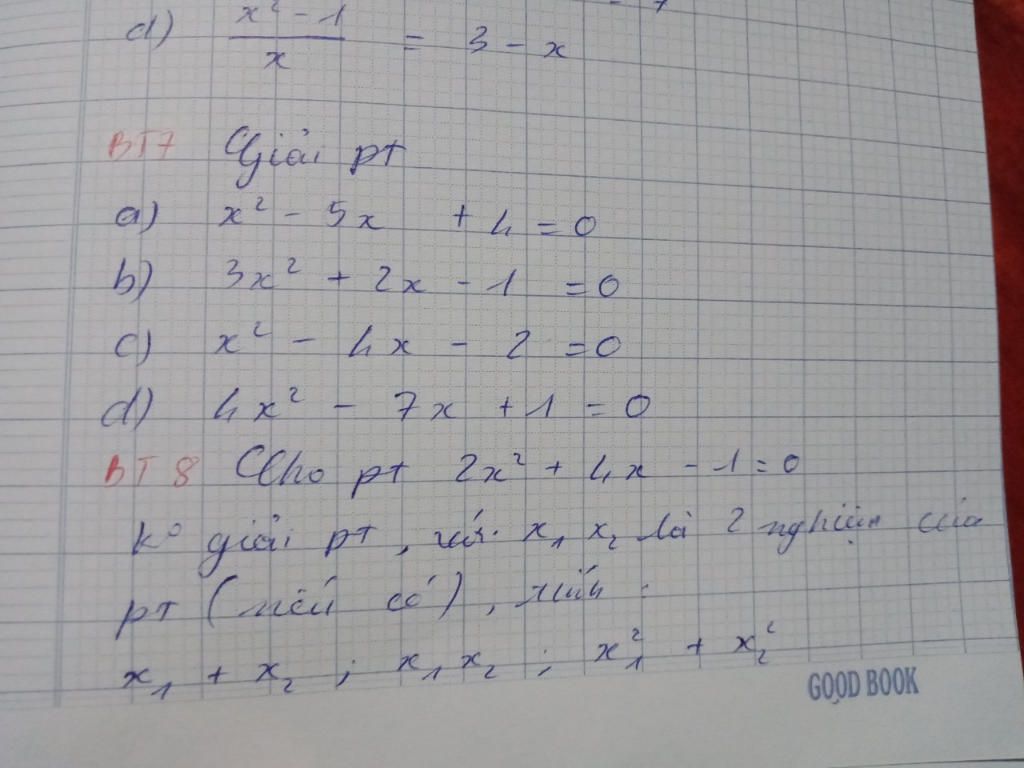 d) x² - 1 / x = 3 - x
BT7 Giải pt
a) x² - 5x + 4 = 0
b) 3x² + 2x - 1 = 0
c) x² - 4x - 2 = 0
d) 4x² - 7x + 1 = 0
BT 8 Cho pt 2x² + 4x - 1 = 0
k° giải pt, với x₁ x₂ là 2 nghiệm của
pt (nếu có),
x₁ + x₂ ; x₁ x₂ ; x₁² + x₂²
GOOD BOOK